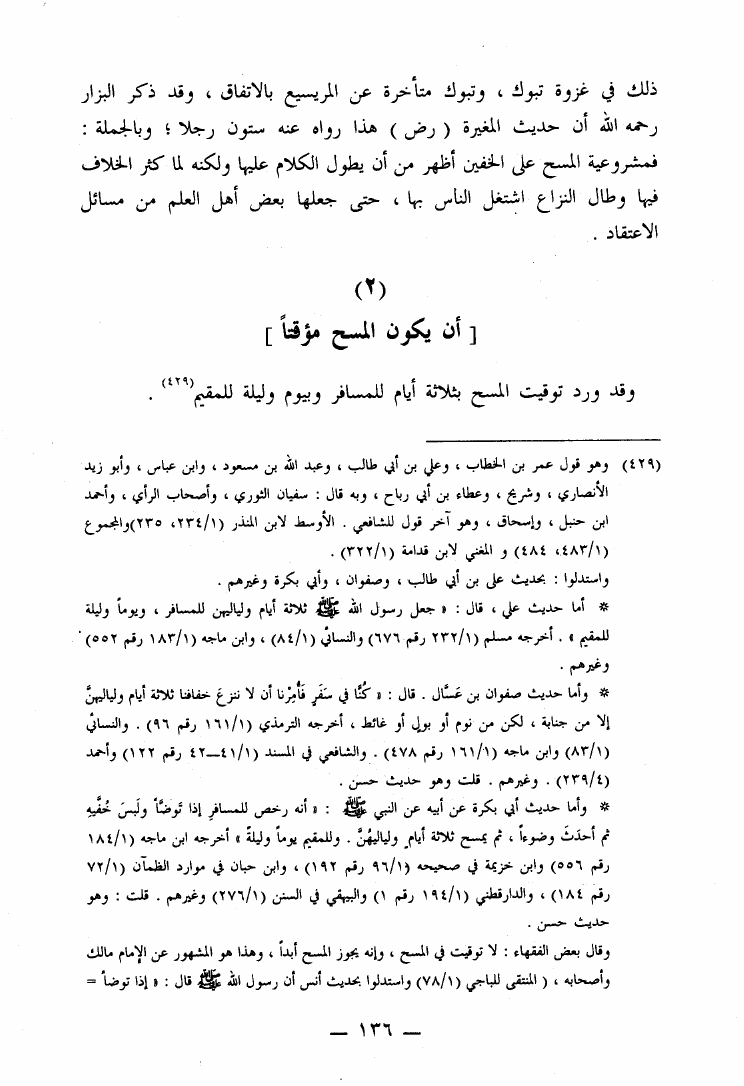 ذلك في غزوة تبوك ، وتبوك متأخرة عن المريسيع بالاتفاق ، وقد ذكر البزار
رحمه الله أن حديث المغيرة ( رض ) هذا رواه عنه ستون رجلا ؛ وبالجملة :
فمشروعية المسح على الخفين أظهر من أن يطول الكلام عليها ولكنه لما كثر الخلاف
فيها وطال النزاع اشتغل الناس بها ، حتى جعلها بعض أهل العلم من مسائل
الاعتقاد .
(٢)
[ أن يكون المسح مؤقتاً ]
وقد ورد توقيت المسح بثلاثة أيام للمسافر وبيوم وليلة للمقيم(٤٢٩) .
(٤٢٩) وهو قول عمر بن الخطاب ، وعلي بن أبي طالب ، وعبد الله بن مسعود ، وابن عباس ، وأبو زيد
الأنصاري ، وشريح ، وعطاء بن أبي رباح ، وبه قال : سفيان الثوري ، وأصحاب الرأي ، وأحمد
ابن حنبل ، وإسحاق ، وهو آخر قول للشافعي . الأوسط لابن المنذر (٢٣٤/١، ٢٣٥)والمجموع
(٤٨٣/١، ٤٨٤) و المغني لابن قدامة (٣٢٢/١) .
واستدلوا : بحديث علي بن أبي طالب ، وصفوان ، وأبي بكرة وغيرهم .
* أما حديث علي ، قال : « جعل رسول الله ﷺ ثلاثة أيام ولياليهن للمسافر ، ويوماً وليلة
للمقيم » . أخرجه مسلم (٢٣٢/١ رقم ٦٧٦) والنسائي (٨٤/١) ، وابن ماجه (١٨٣/١ رقم ٥٥٢)
وغيرهم .
* وأما حديث صفوان بن عَسَّال . قال : « كُنَّا في سَفَرٍ فَأُمِرْنا أن لا ننزعَ خفافنا ثلاثة أيام ولياليهنَّ
إلا من جنابة ، لكن من نوم أو بولٍ أو غائط ، أخرجه الترمذي (١٦١/١ رقم ٩٦) . والنسائي
(٨٣/١) وابن ماجه (١٦١/١ رقم ٤٧٨) . والشافعي في المسند (٤١/١ــ٤٢ رقم ١٢٢) وأحمد
(٢٣٩/٤) . وغيرهم . قلت وهو حديث حسن .
* وأما حديث أبي بكرة عن أبيه عن النبي ﷺ : « أنه رخص للمسافرِ إذا تَوضَّأَ ولَبسَ خُفَّيهِ
ثم أحدَثَ وضوءاً ، ثم يمسح ثلاثةَ أيامٍ ولياليهُنَّ . وللمقيم يوماً وليلةً » أخرجه ابن ماجه (١٨٤/١
رقم ٥٥٦) وابن خزيمة في صحيحه (٩٦/١ رقم ١٩٢) ، وابن حبان في موارد الظمآن (٧٢/١
رقم ١٨٤) ، والدارقطني (١٩٤/١ رقم ١) والبيهقي في السنن (٢٧٦/١) وغيرهم . قلت : وهو
حديث حسن .
وقال بعض الفقهاء : لا توقيت في المسح ، وإنه يجوز المسح أبداً ، وهذا هو المشهور عن الإمام مالك
وأصحابه ، ( المنتقى للباجي (٧٨/١) واستدلوا بحديث أنس أن رسول الله ﷺ قال : « إذا توضأ =
— ١٣٦ —